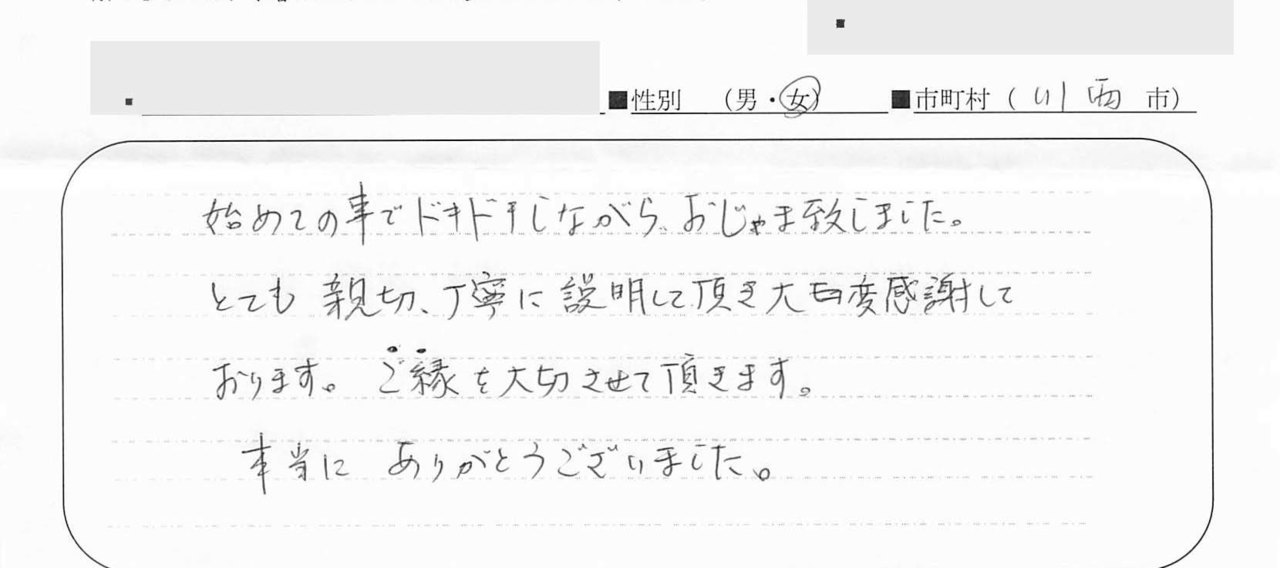 ■性別 （男・女） ■市町村（川西 市）
始めての事でドキドキしながら、おじゃま致しました。
とても 親切、丁寧に 説明して頂き大変感謝して
おります。 ご縁を大切させて頂きます。
本当に ありがとうございました。